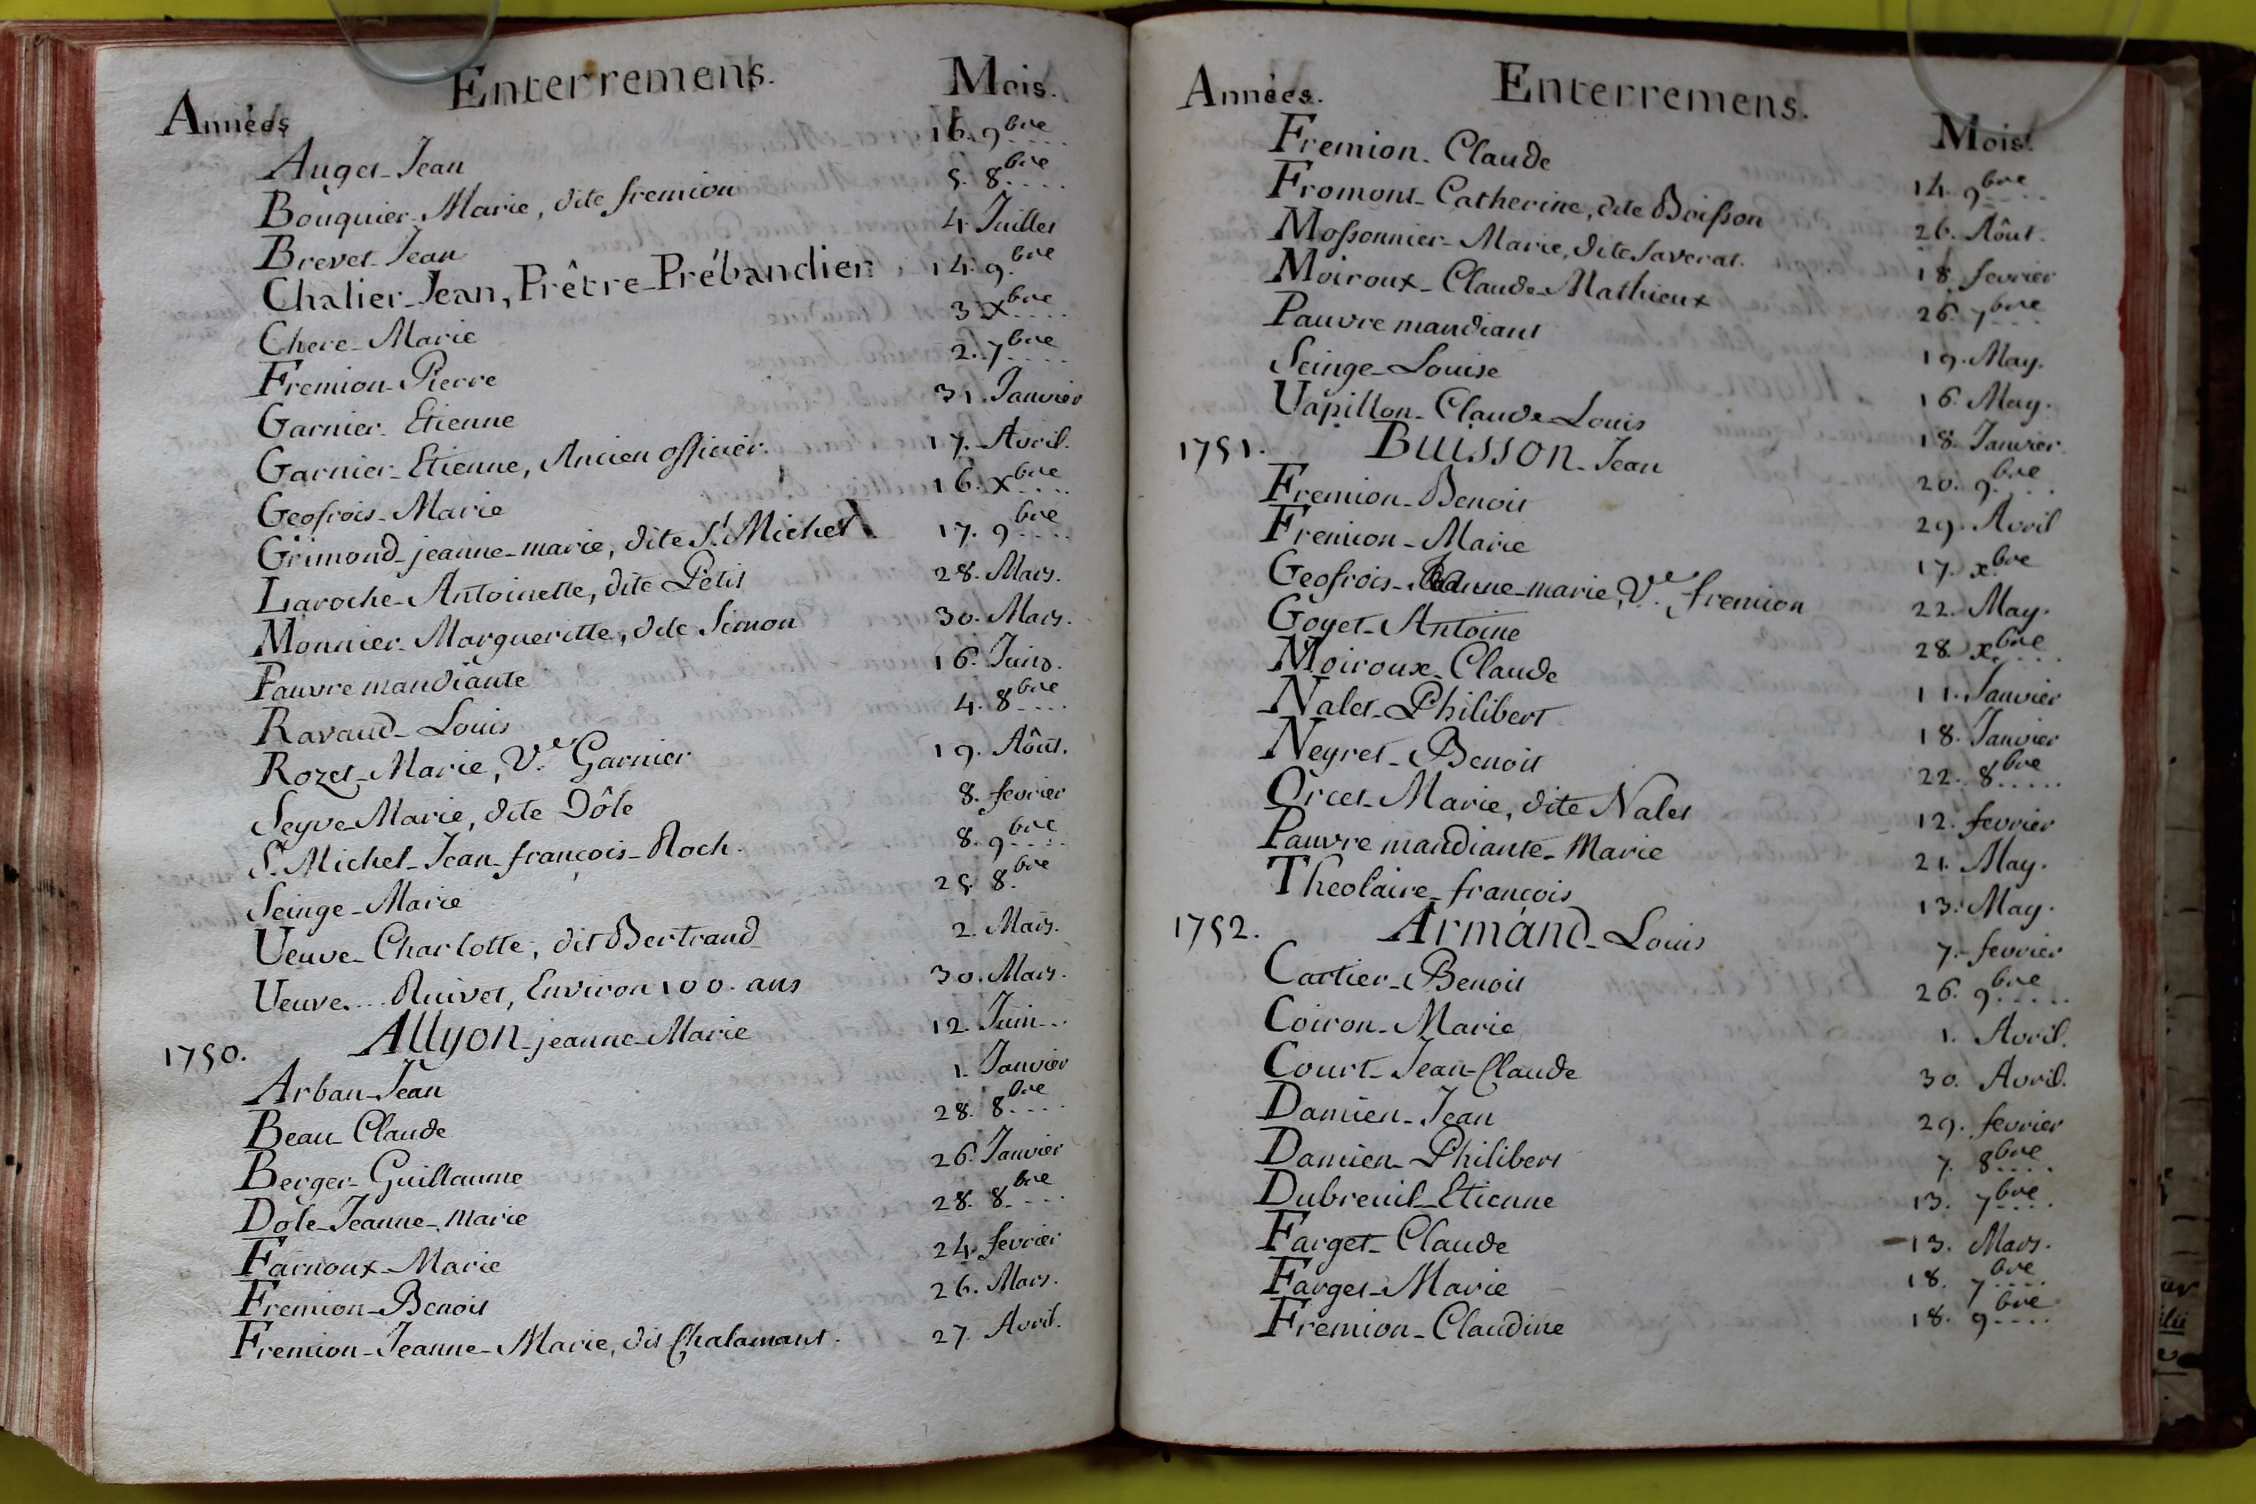 Années Enterremens. Mois.
Auget Jean 16. 9bre
Bouquier Marie, dite fremion 5. 8bre
Brevet Jean 4. Juillet
Chalier Jean, Prêtre Prébandier 14. 9bre
Chere Marie 3 Xbre
Fremion Pierre 2. 7bre
Garnier Etienne 31. Janvier
Garnier Etienne, Ancien officier. 17. Avril.
Geofrois Marie 16. Xbre
Grimond jeanne marie, dite St Michel 17. 9bre
Laroche Antoinette, dite Petit 28. Mars.
Monnier Margueritte, dite Simon 30. Mars.
Pauvre mandiante 16. Juin.
Ravaud Louis 4. 8bre
Rozet Marie, Ve Garnier 19. Aôut.
Seyve Marie, dite Dôle 8. fevrier
St Michel Jean françois Roch. 8. 9bre
Seinge Marie 25 8bre
Veuve Charlotte, dit Bertrand 2. Mars.
Veuve... Ruivet, Environ 100. ans 30. Mars.
1750. Allyon jeanne Marie 12. Juin
Arban Jean 1. Janvier
Beau Claude 28. 8bre
Berger Guillaume 26. Janvier
Dole Jeanne Marie 28. 8bre
Farnoux Marie 24. fevrier
Fremion Benoit 26. Mars.
Fremion Jeanne Marie, dit Chalamant. 27. Avril.
Années. Enterremens. Mois.
Fremion Claude 14. 9bre
Fromont Catherine, dite Boisson 26. Aôut.
Mossonnier Marie, dite Saverat. 18. fevrier
Moiroux Claude Mathieux 26. 7bre
Pauvre mandiant 19. May.
Seinge Louise 16. May.
Vapillon Claude Louis 18. Janvier.
1751. Buisson Jean 20. 9bre
Fremion Benoit 29. Avril
Fremion Marie 17. xbre
Geofrois Jeanne marie, Ve fremion 22. May.
Goyet Antoine 28. xbre
Moiroux Claude 11. Janvier
Nalet Philibert 18. Janvier
Neyret Benoit 22. 8bre
Orcet Marie, dite Nalet 12. fevrier
Pauvre mandiante Marie 21. May.
Theolaire françois 13. May.
1752. Armand Louis 7. fevrier
Cartier Benoit 26. 9bre
Coiron Marie 1. Avril.
Court Jean Claude 30. Avril.
Damien Jean 29. fevrier
Damien Philibert 7. 8bre
Dubreuil Etienne 13. 7bre
Farget Claude 13. Mars.
Farget Marie 18. 7bre
Fremion Claudine 18. 9bre